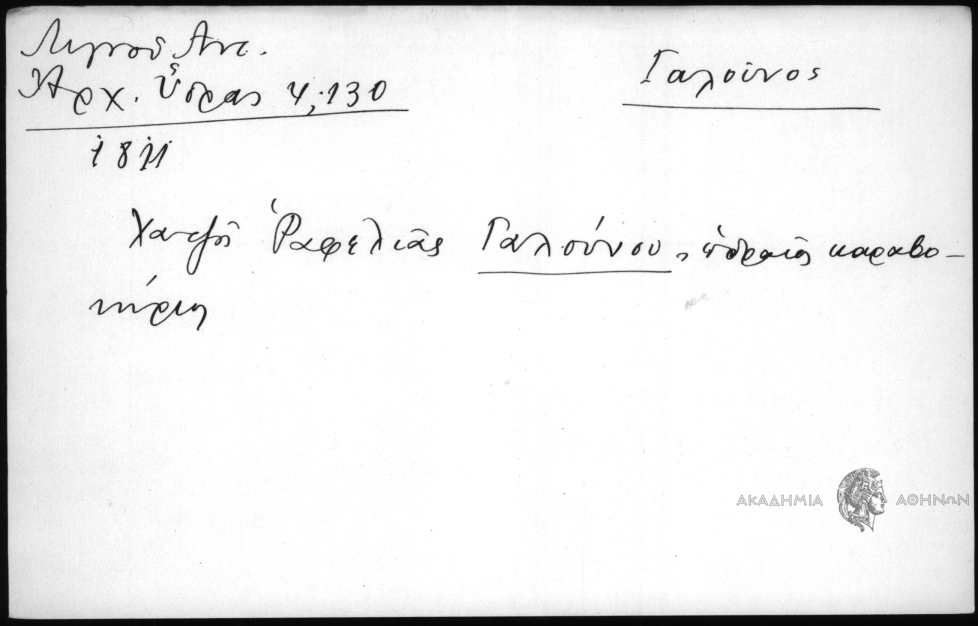 Λιγνοῦ Αντ.
Ἀρχ. Ὕδρας 4, 130
Γαλούνος
1811
Ῥαφελιᾶς Γαλούνου, ὑδραῖος καραβο-
κύρης
ΑΚΑΔΗΜΙΑ ΑΘΗΝΩΝ